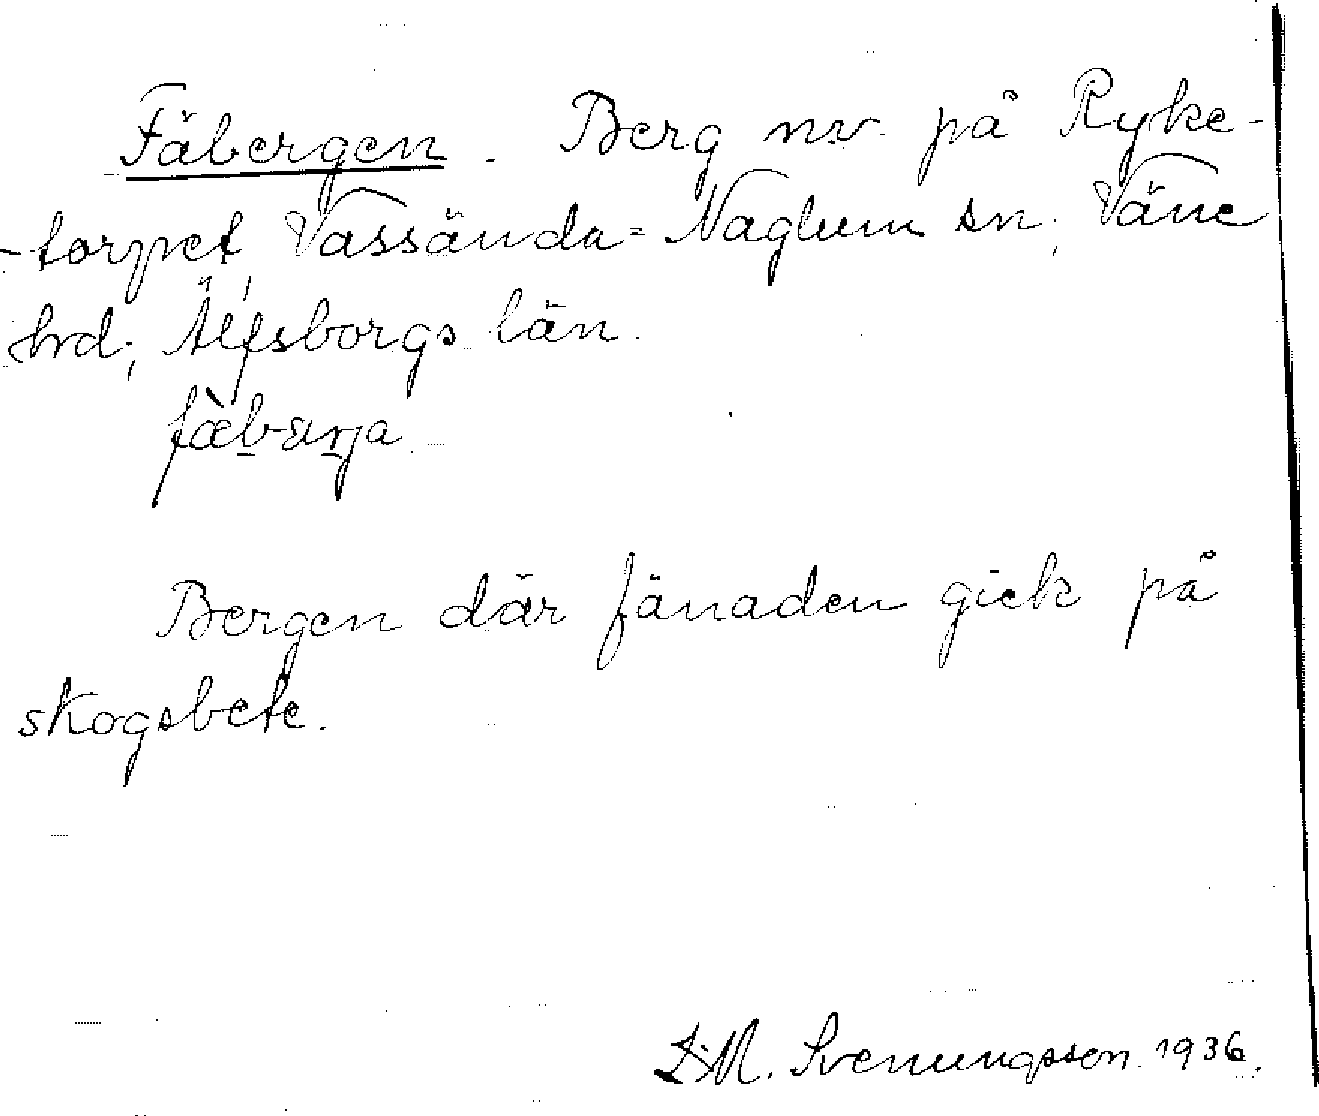 Fäbergen. Berg nv. på Ryke-
-torpet, Vassända-Naglum sn, Väne
hrd, Älfsborgs län.
fæ̀bærja
Bergen där fänaden gick på
skogsbete.
Svenungsson. 1936.